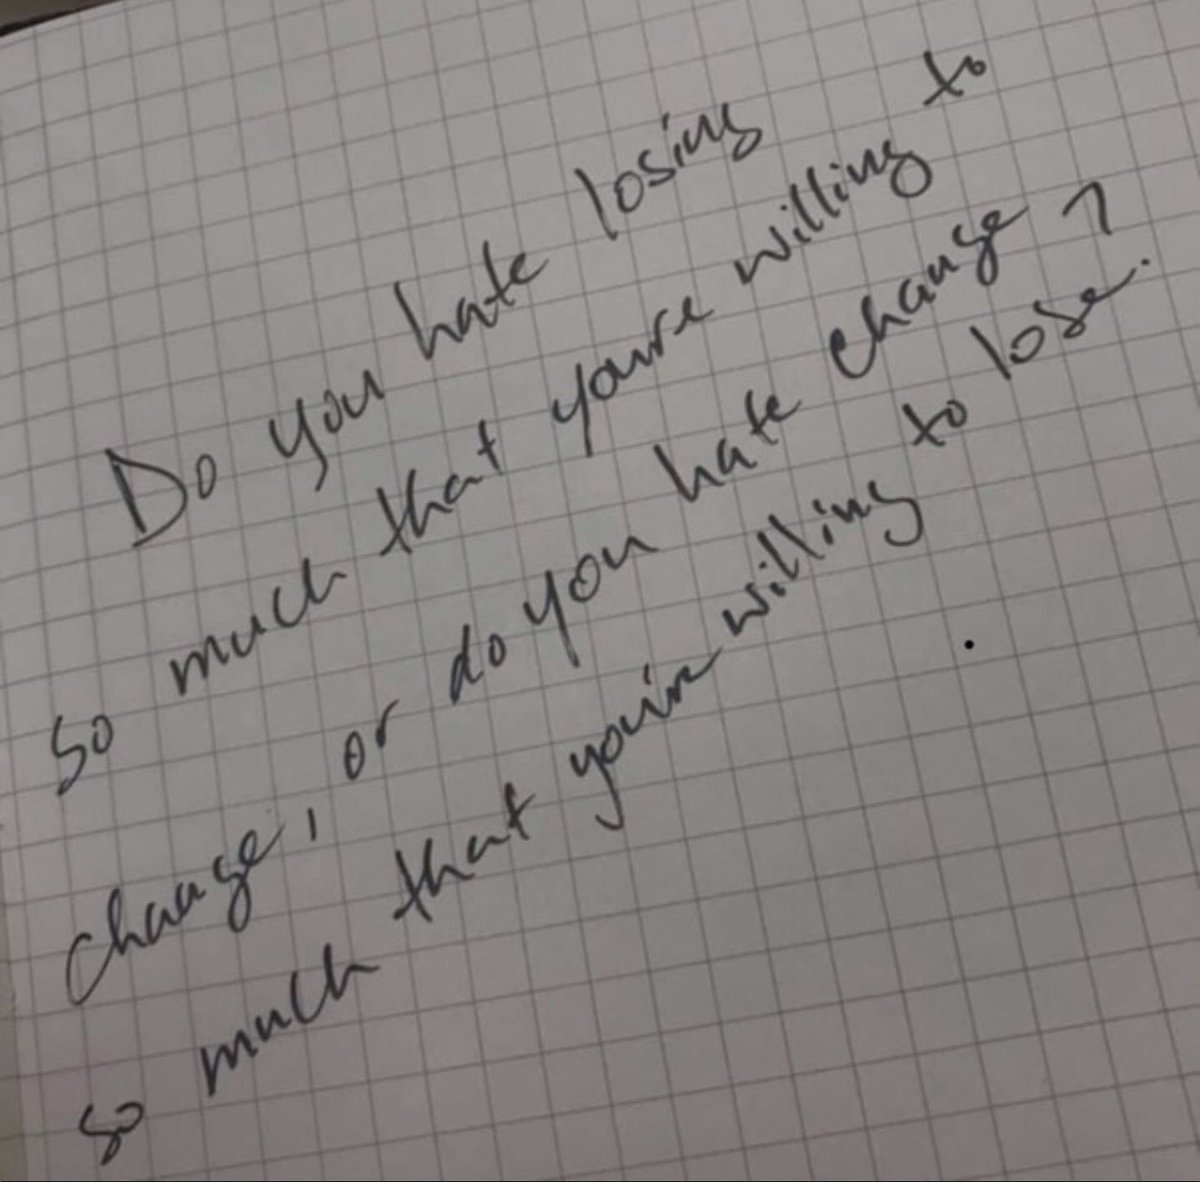 Do you hate losing
so much that youre willing to
change, or do you hate change?
so much that you're willing to lose.